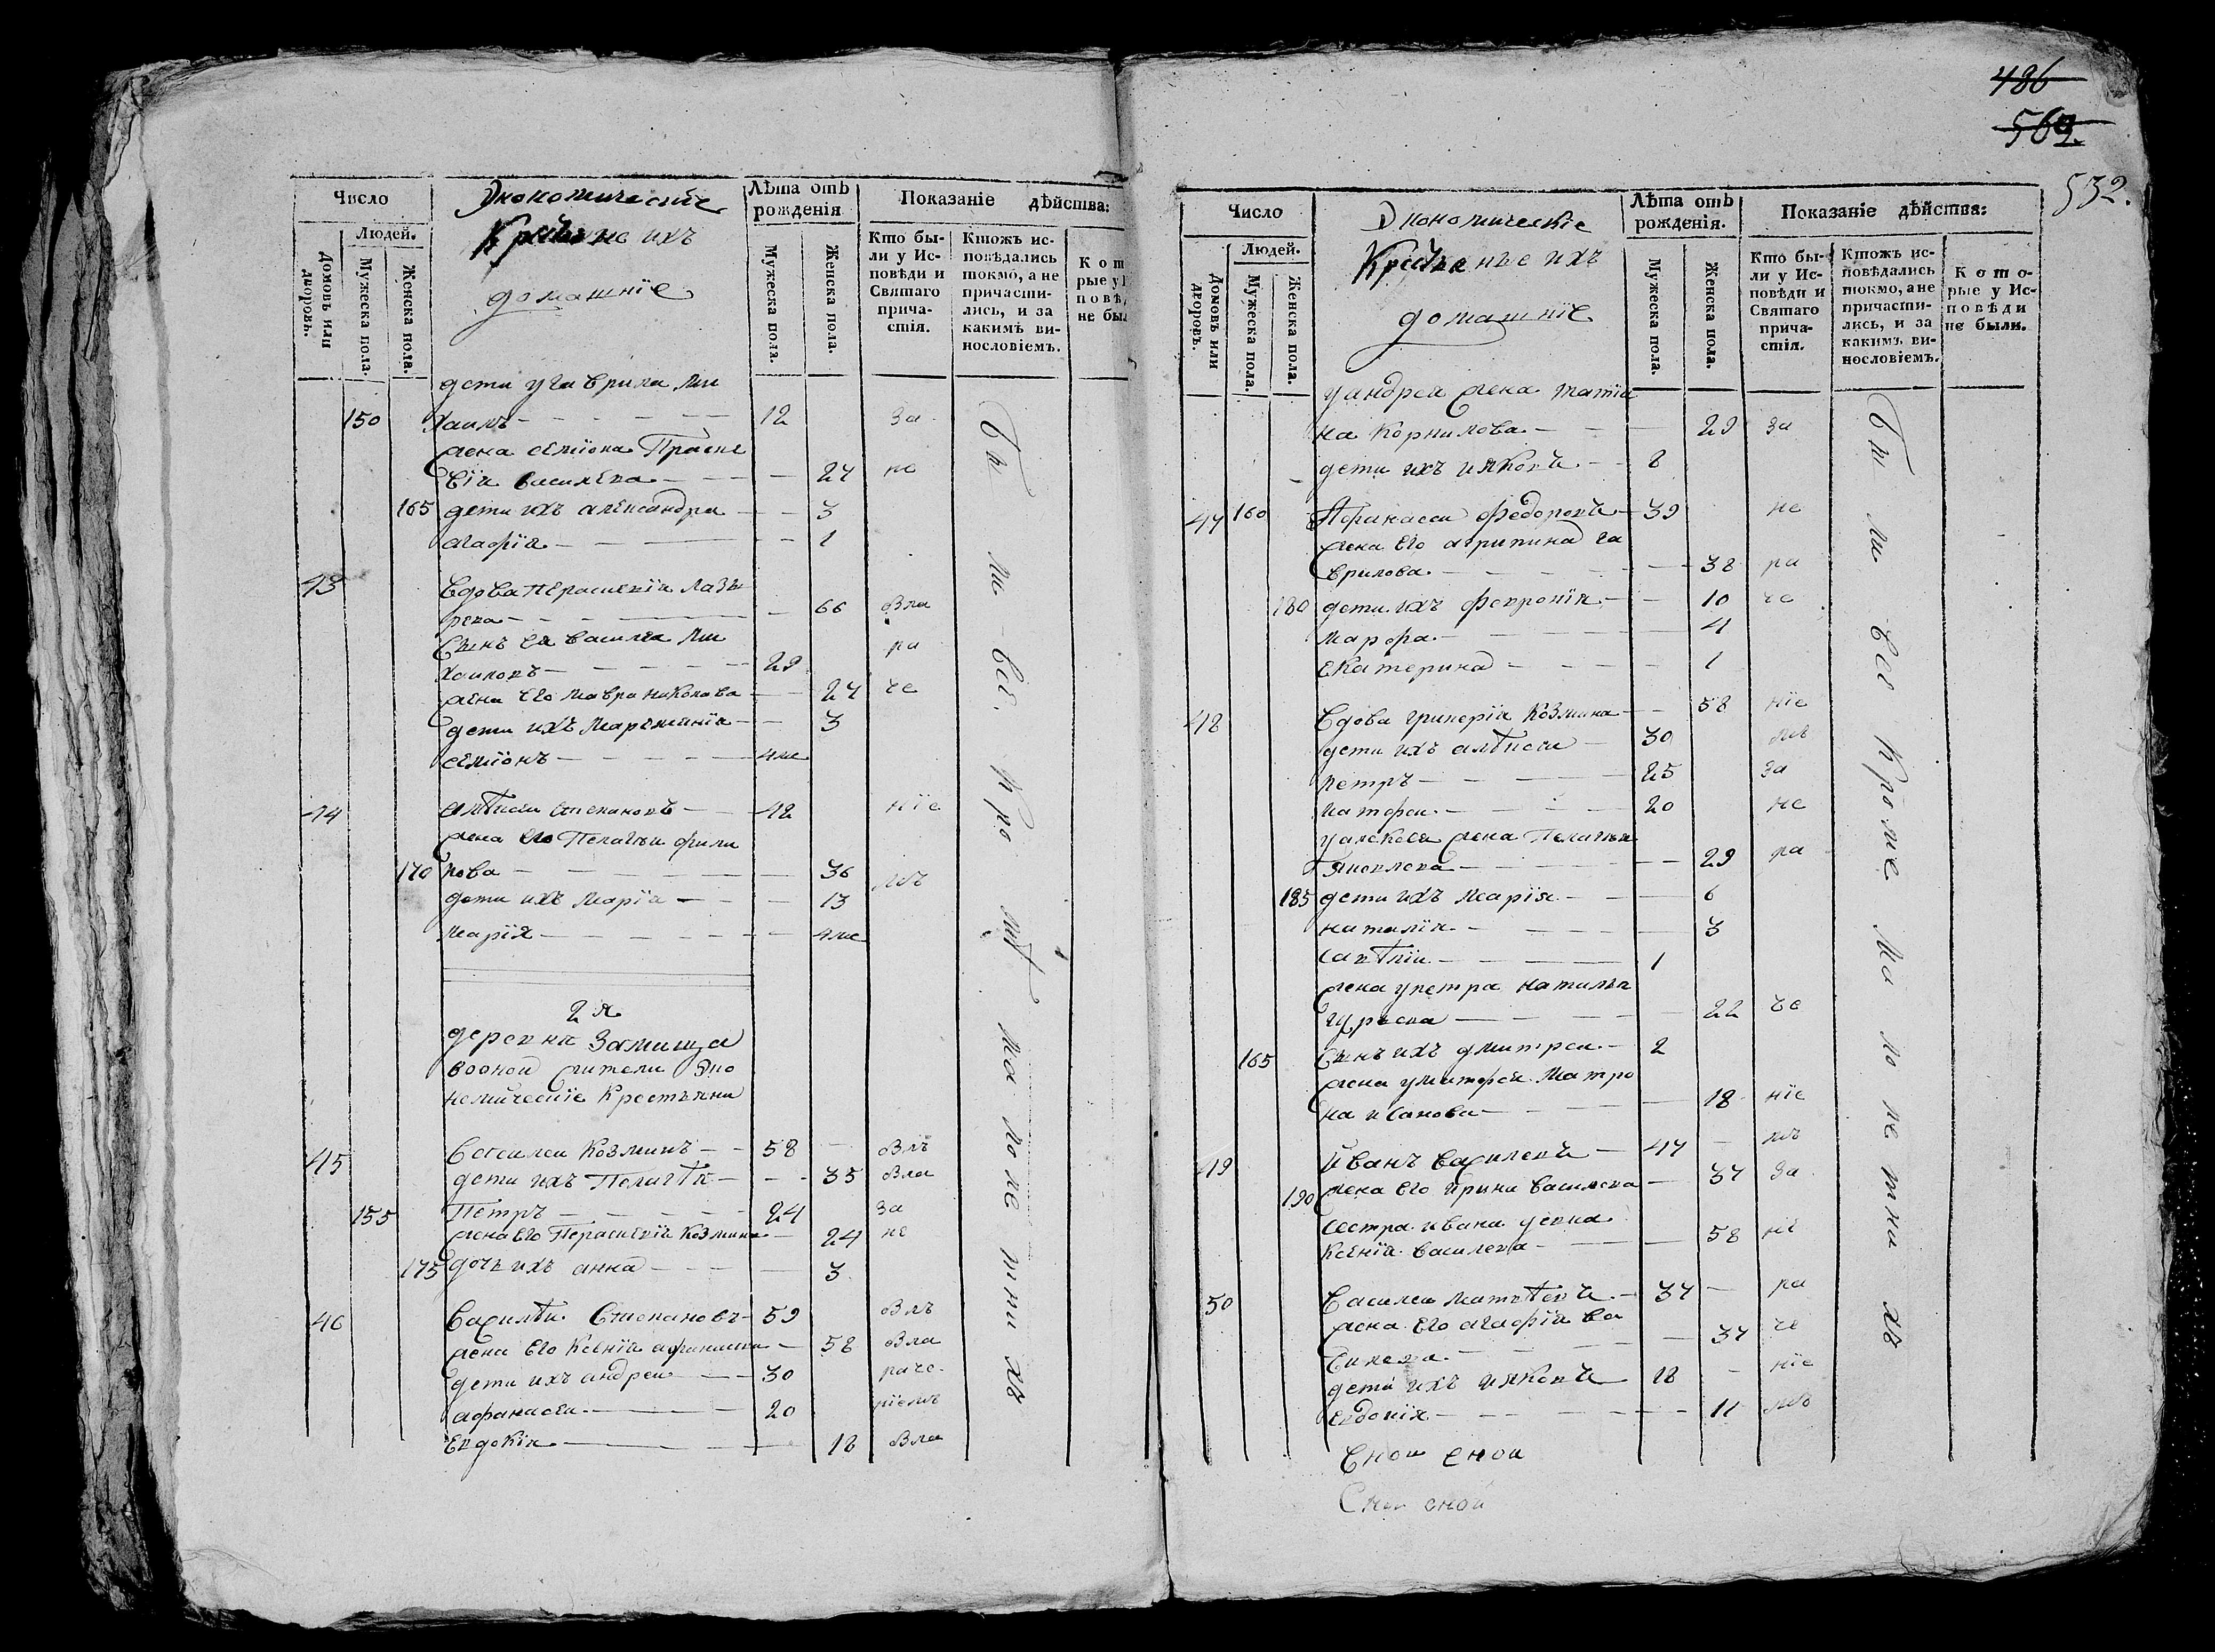 Число
Людей.
Домовъ или дворовъ.
Мужеска пола.
Женска пола.
Экономические
Крестьяне ихъ
домашнїе
Лѣта отъ рожденія
Мужеска пола.
Женска пола.
Показаніе дѣйства:
Кто бы-
ли у Ис-
повѣди и
Святаго
прича-
стія.
Ктожъ ис-
повѣдались
токмо, а не
причасти-
лись, и за
какимъ ви-
нословіемъ.
дети у гаврила ми
150 хаилъ 12 за
жена семїона Праске
вїя василева 24 не
165 дети ихъ александра 3
агафїя 1
43 вдова Пераскевїя лаза
рева 66 Вла
Сынъ ея василеи Ми
хаиловъ 29 ра
жена его мавра никонова 24 че
дети ихъ Маремїяна 3
семїонъ 4 ме
44 алѣѯеи степановъ 42 нїе
жена его Пелагѣи фили
170 пова 36
дети ихъ марїя 13 мъ
марїя 4 ме
2 я
деревня Замища
военои жители Эко
номическїе Крестьяни
45 василеи Козминъ 58 Влъ
дети ихъ Пелагѣя 35 Вла
155 Петръ 24 за
жена его Пераскевїя Козмина 24 не
175 дочь ихъ анна 3
46 василѣи Степановъ 59 Влъ
жена его Ксенїя афанасева 58 Вла
дети ихъ андреи 30 раче
афанасеи 20 нїемъ
Евдокїя 18 Вла
Бы ли все кроме малолетнихъ
486
569.
532.
Число
Людей.
Домовъ или дворовъ.
Мужеска пола.
Женска пола.
Экономическїе
Крестьянье ихъ
домашнїе
Лѣта отъ рожденія.
Мужеска пола.
Женска пола.
Показаніе дѣйства:
Кто бы-
ли у Ис-
повѣди и
Святаго
прича-
стія.
Ктожъ ис-
повѣдались
токмо, а не
причасти-
лись, и за
какимъ ви-
нословіемъ.
Кото-
рые у Ис-
повѣди
не были.
у андрея жена татїа
на Корнилова 29 за
дети ихъ ияковъ 8
47 160 Афанасеи федоровъ 39 не
жена его агрипина га
врилова 38 ра
180 дети ихъ февронїя 10 че
марфа 4
екатерина 1
48 вдова гликерїя Козмина 58 нїе
дети ихъ алѣѯеи 30 мъ
петръ 25 за
матфеи 20 не
у алексея жена Пелагѣя
яковлева 29 ра
185 дети ихъ марїя 6
наталїя 3
савѣлїи 1
жена у петра наталья
гурьева 22 че
165 Сынъ ихъ дмитреи 2
жена у матфея Матро
на исакова 18 нїе
49 Иванъ василевъ 47 мъ
190 жена его ирина василева 37 за
сестра ивана девка
Ксенїя василева 58 не
50 василеи матвѣевъ 37 ра
жена его агафїя ва
силева 37 че
дети ихъ ияковъ 18 нїе
евдокїя 11 мъ
Бы ли все кроме малолетнихъ
Снои снои
Снои сной